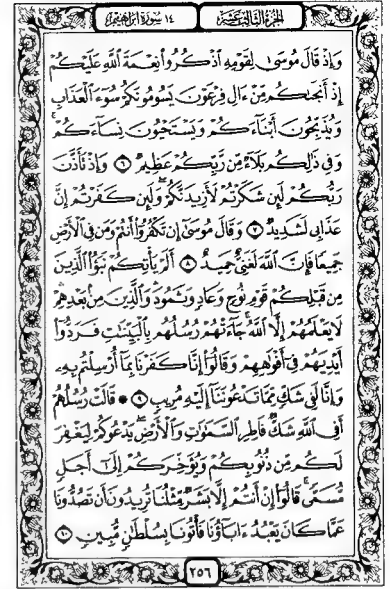 الجزء الثالث عشر
١٤ سورة ابراهيم
وَإِذْ قَالَ مُوسَىٰ لِقَوْمِهِ ٱذْكُرُوا۟ نِعْمَةَ ٱللَّهِ عَلَيْكُمْ
إِذْ أَنجَىٰكُم مِّنْ ءَالِ فِرْعَوْنَ يَسُومُونَكُمْ سُوٓءَ ٱلْعَذَابِ
وَيُذَبِّحُونَ أَبْنَآءَكُمْ وَيَسْتَحْيُونَ نِسَآءَكُمْ ۚ
وَفِى ذَٰلِكُم بَلَآءٌ مِّن رَّبِّكُمْ عَظِيمٌ ۝٦ وَإِذْ تَأَذَّنَ
رَبُّكُمْ لَئِن شَكَرْتُمْ لَأَزِيدَنَّكُمْ ۖ وَلَئِن كَفَرْتُمْ إِنَّ
عَذَابِى لَشَدِيدٌ ۝٧ وَقَالَ مُوسَىٰٓ إِن تَكْفُرُوٓا۟ أَنتُمْ وَمَن فِى ٱلْأَرْضِ
جَمِيعًا فَإِنَّ ٱللَّهَ لَغَنِىٌّ حَمِيدٌ ۝٨ أَلَمْ يَأْتِكُمْ نَبَؤُا۟ ٱلَّذِينَ
مِن قَبْلِكُمْ قَوْمِ نُوحٍ وَعَادٍ وَثَمُودَ وَٱلَّذِينَ مِنۢ بَعْدِهِمْ ۛ
لَا يَعْلَمُهُمْ إِلَّا ٱللَّهُ ۚ جَآءَتْهُمْ رُسُلُهُم بِٱلْبَيِّنَٰتِ فَرَدُّوٓا۟
أَيْدِيَهُمْ فِىٓ أَفْوَٰهِهِمْ وَقَالُوٓا۟ إِنَّا كَفَرْنَا بِمَآ أُرْسِلْتُم بِهِۦ
وَإِنَّا لَفِى شَكٍّ مِّمَّا تَدْعُونَنَآ إِلَيْهِ مُرِيبٍ ۝٩ ۞ قَالَتْ رُسُلُهُمْ
أَفِى ٱللَّهِ شَكٌّ فَاطِرِ ٱلسَّمَٰوَٰتِ وَٱلْأَرْضِ ۖ يَدْعُوكُمْ لِيَغْفِرَ
لَكُم مِّن ذُنُوبِكُمْ وَيُؤَخِّرَكُمْ إِلَىٰٓ أَجَلٍ
مُّسَمًّى ۚ قَالُوٓا۟ إِنْ أَنتُمْ إِلَّا بَشَرٌ مِّثْلُنَا تُرِيدُونَ أَن تَصُدُّونَا
عَمَّا كَانَ يَعْبُدُ ءَابَآؤُنَا فَأْتُونَا بِسُلْطَٰنٍ مُّبِينٍ ۝١٠
٢٥٦